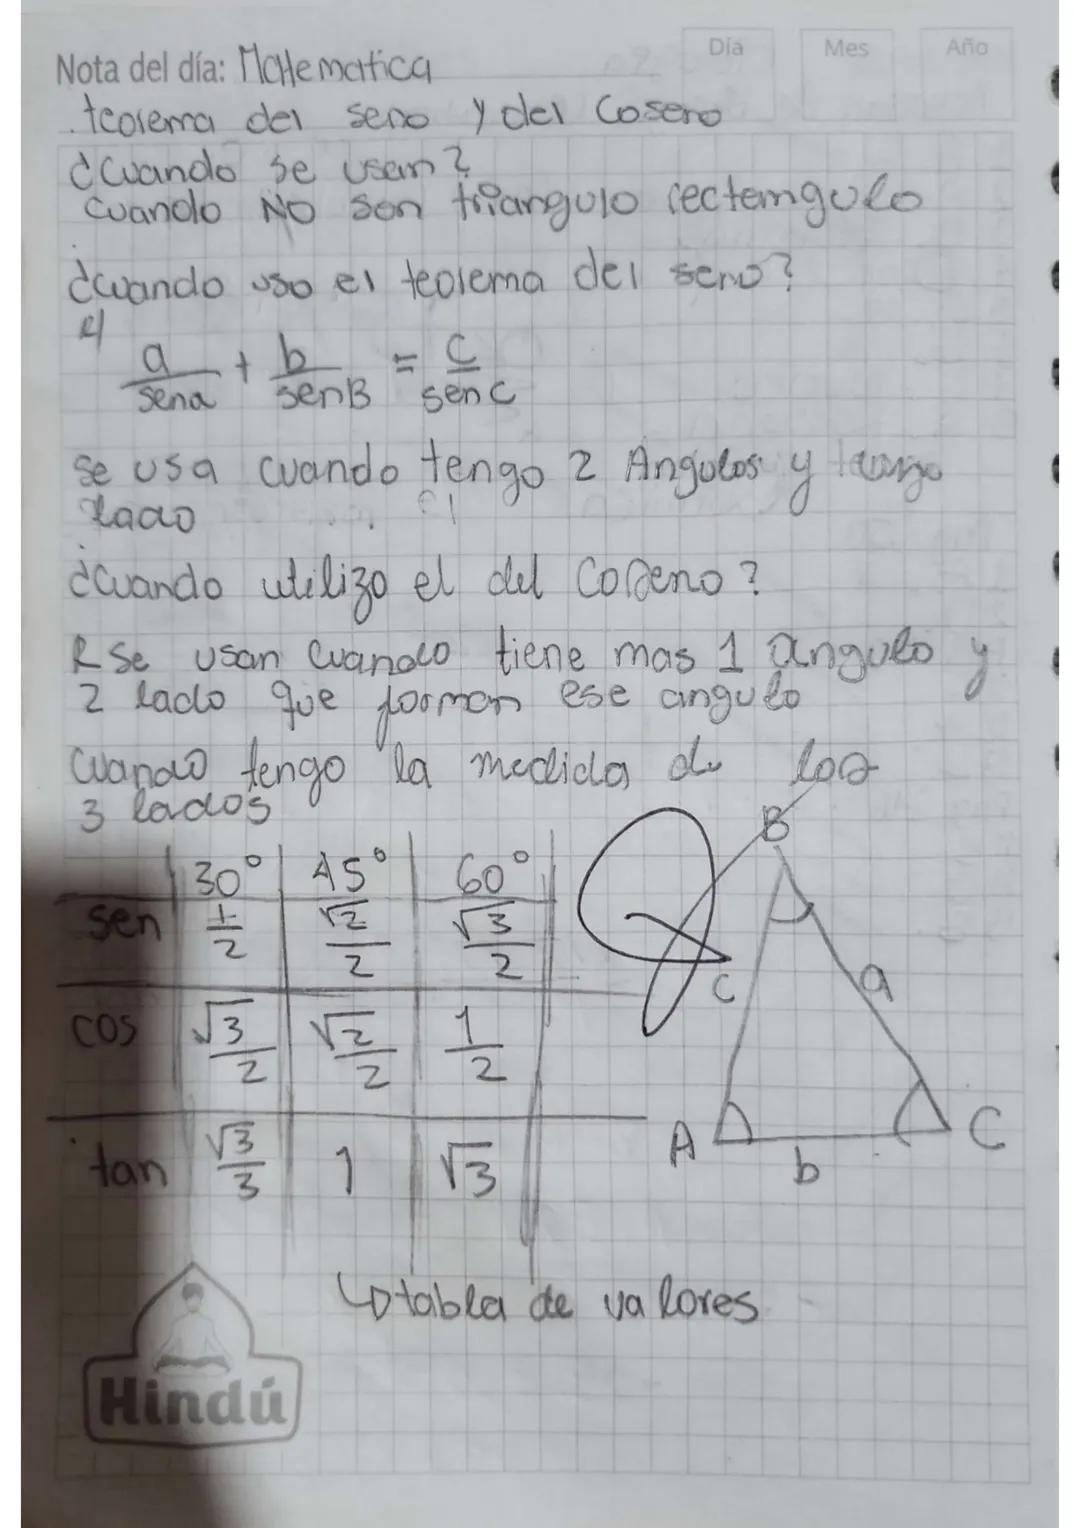 Día Mes Año
Nota del día: Matematica
. teorema del seno y del Coseno
¿Cuando se usan?
Cuando NO son triangulo rectangulo
¿cuando uso el teorema del seno?
R/
a/sena + b/senB = c/senC
se usa cuando tengo 2 Angulos y
lado
¿Cuando utilizo el del Coseno?
R Se usan Cuando tiene mas 1 angulo y
2 lado que forman ese angulo
Cuando tengo la medida de los
3 lados
30° 45° 60°
sen 1/2 √2/2 √3/2
cos √3/2 √2/2 1/2
tan √3/3 1 √3
B
c a
A b C
↳ tabla de valores
Hindú